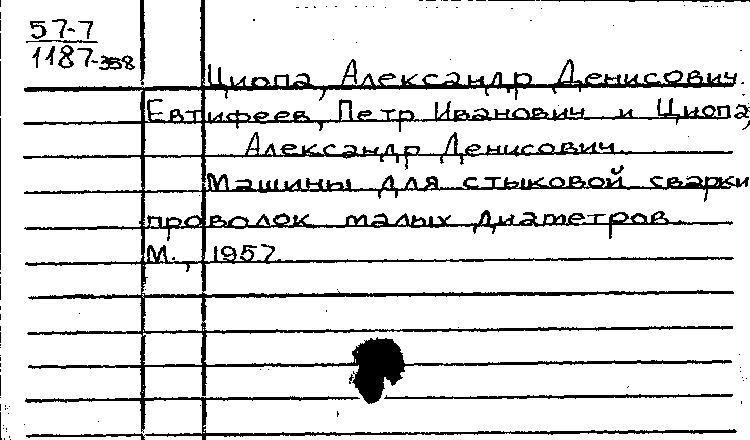 57-7
1187-358
Циопа, Александр Денисович.
Евтифеев, Петр Иванович и Циопа,
Александр Денисович.
Машины для стыковой сварки
проволок малых диаметров.
М., 1957.